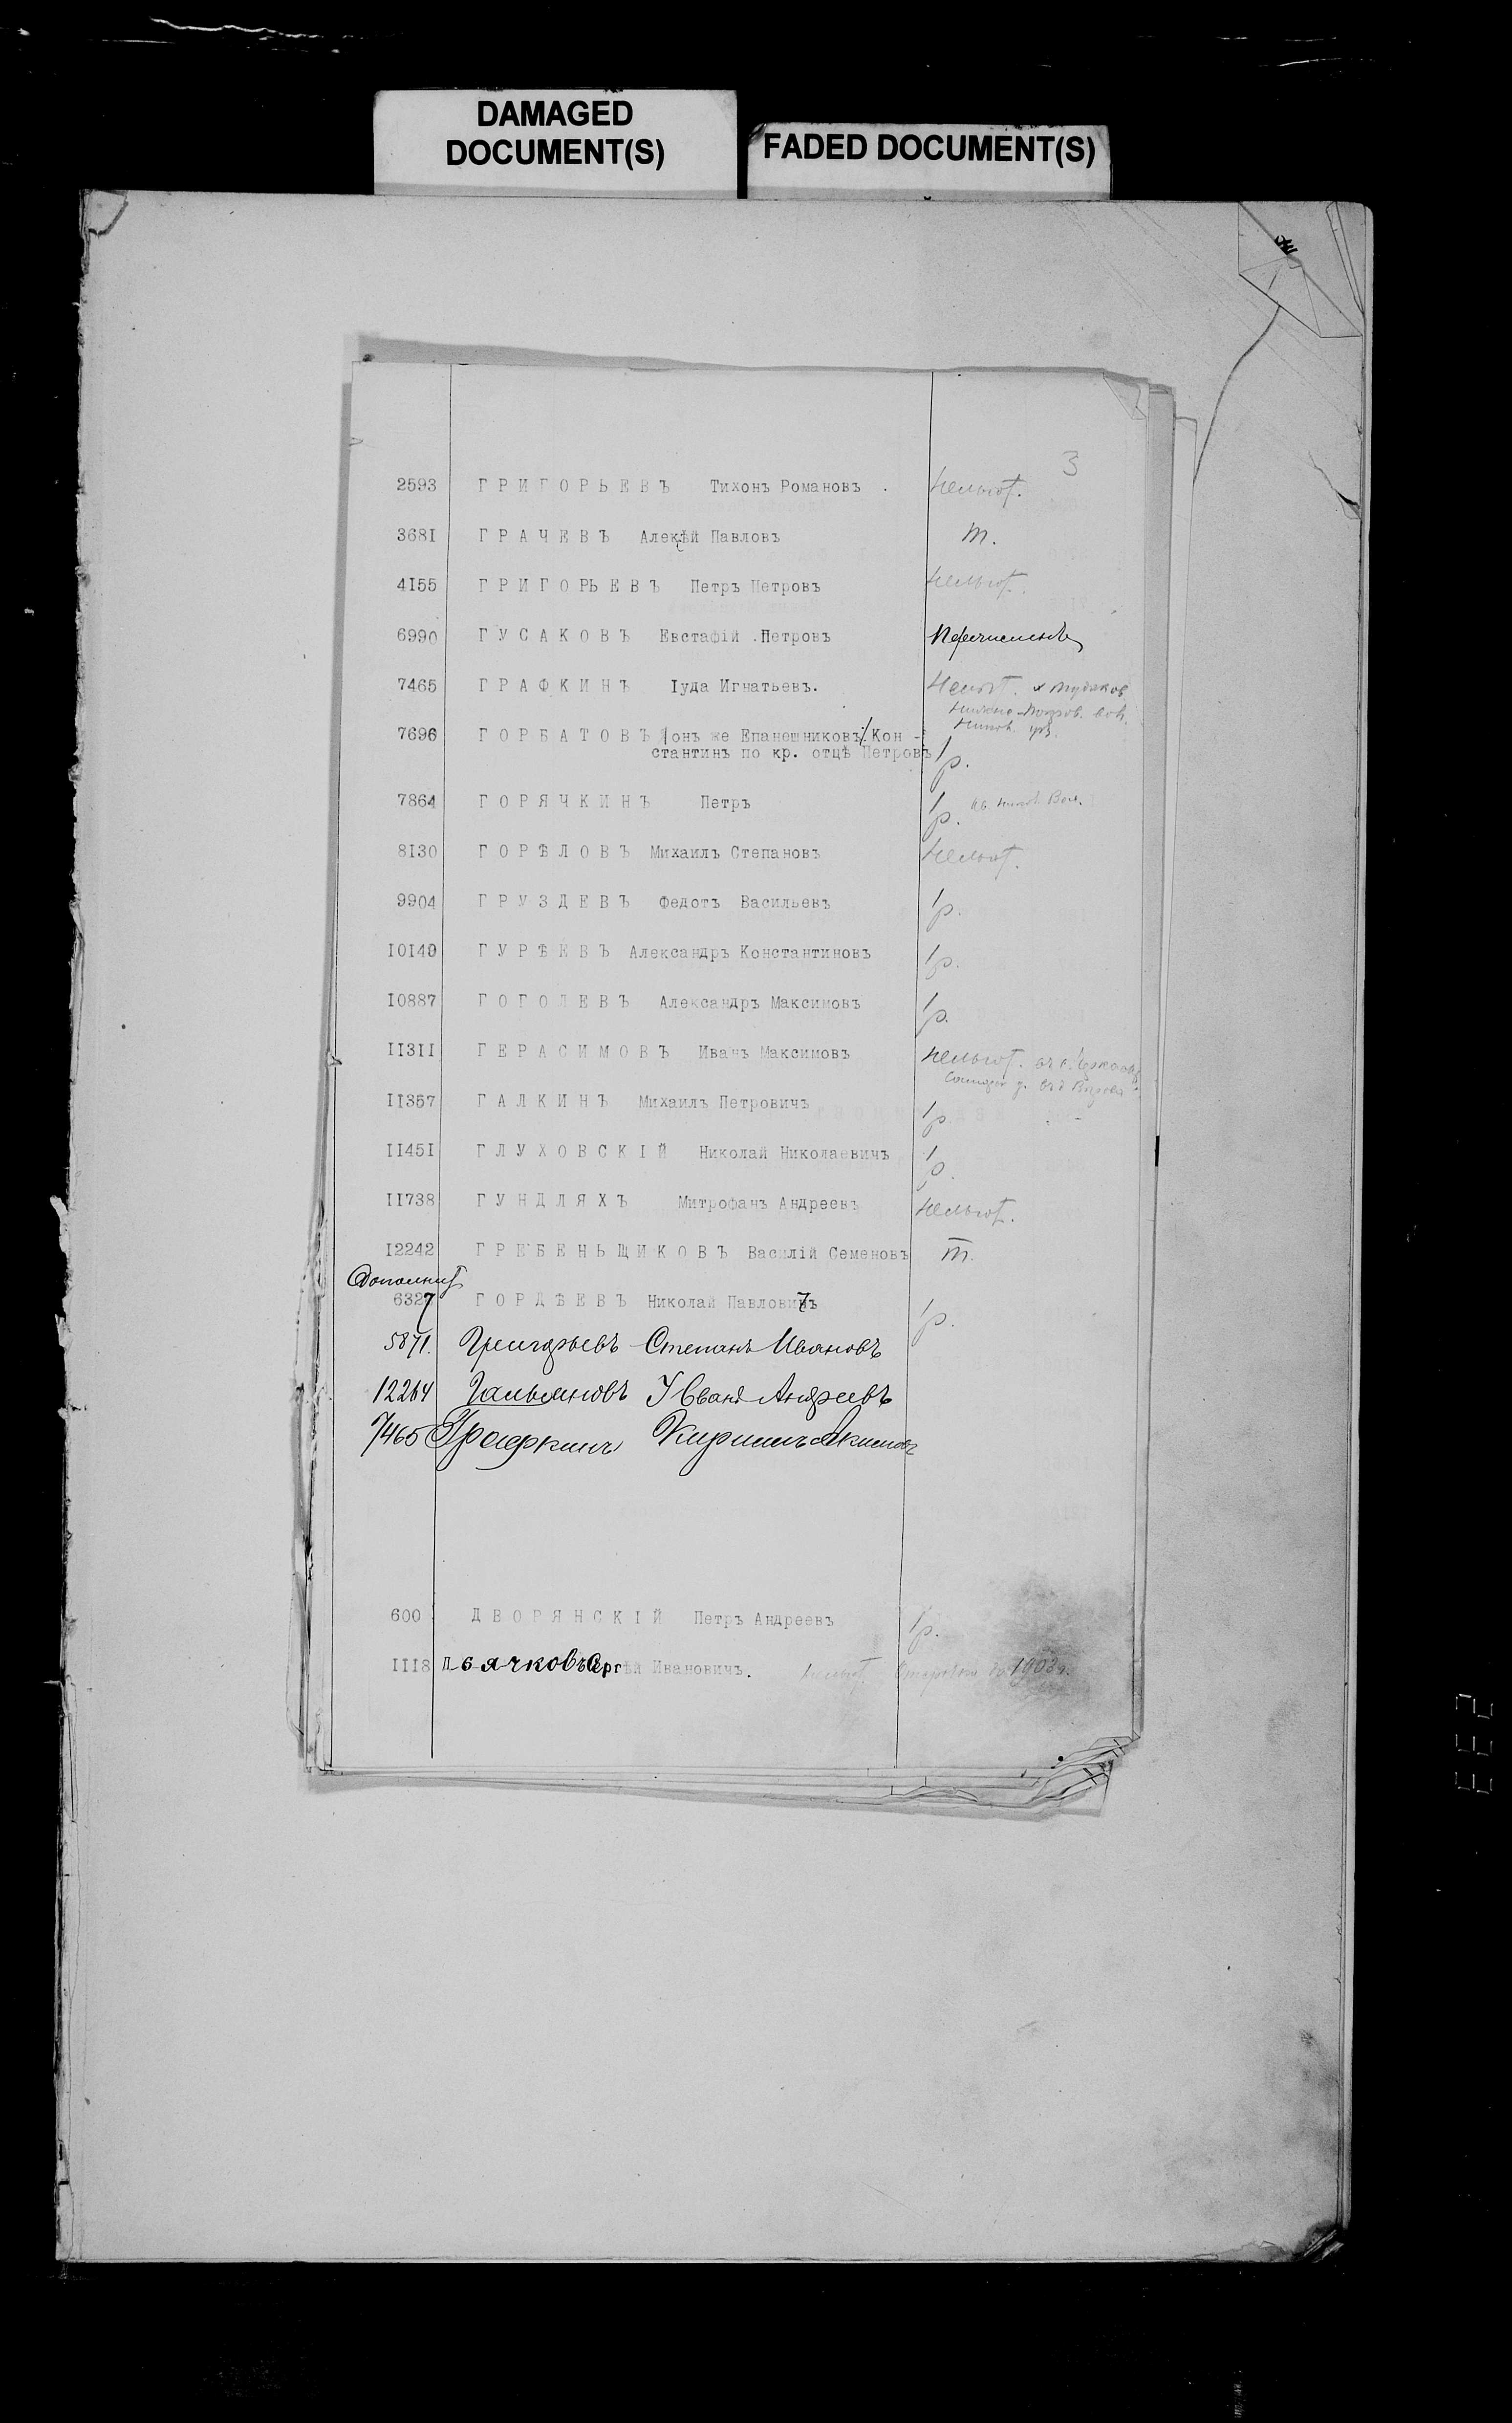 DAMAGED
DOCUMENT(S)
FADED DOCUMENT(S)
3
2593 ГРИГОРЬЕВЪ Тихонъ Романовъ . Нельгот.
3681 ГРАЧЕВЪ Алексѣй Павловъ т.
4155 ГРИГОРЬЕВЪ Петръ Петровъ Нельгот.
6990 ГУСАКОВЪ Евстафій Петровъ Перечисленъ
7465 ГРАФКИНЪ Іуда Игнатьевъ. Нельгот.
7696 ГОРБАТОВЪ /онъ же Епанешниковъ/. Кон -
стантинъ по кр. отцѣ Петровъ 1р.
7864 ГОРЯЧКИНЪ Петръ 1р.
8130 ГОРѢЛОВЪ Михаилъ Степановъ Нельгот.
9904 ГРУЗДЕВЪ Федотъ Васильевъ 1р.
10149 ГУРѢЕВЪ Александръ Константиновъ 1р.
10887 ГОГОЛЕВЪ Александръ Максимовъ 1р.
11311 ГЕРАСИМОВЪ Иванъ Максимовъ Нельгот.
11357 ГАЛКИНЪ Михаилъ Петровичъ 1р
11451 ГЛУХОВСКІЙ Николай Николаевичъ 1р.
11738 ГУНДЛЯХЪ Митрофанъ Андреевъ Нельгот.
12242 ГРЕБЕНЬЩИКОВЪ Василій Семеновъ т.
Дополнит
6327 ГОРДѢЕВЪ Николай Павловичъ 1р.
5871. Григорьевъ Степанъ Ивановъ
12264 Гальяновъ Иванъ Андреевъ
7465 Графкинъ Кириллъ Акимовъ
600 ДВОРЯНСКІЙ Петръ Андреевъ 1р.
1118 Дьячковъ Сергѣй Ивановичъ. Нельгот. 1903г.
EE2